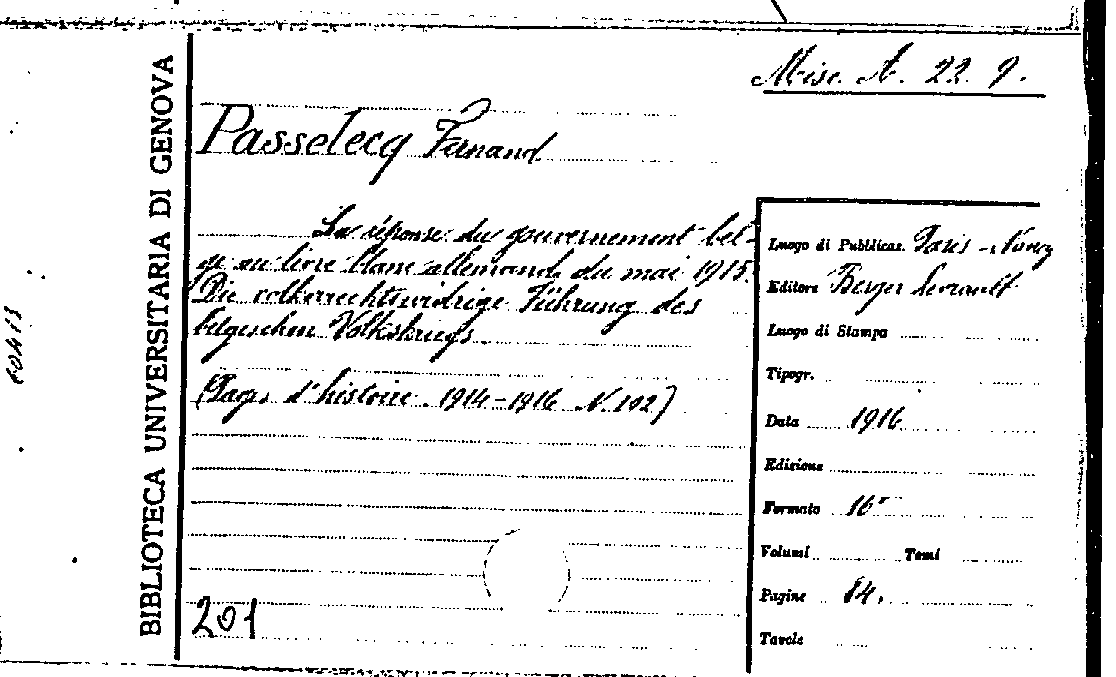 Misc. A. 22. 9.
BIBLIOTECA UNIVERSITARIA DI GENOVA
Passelecq Fernand
La réponse du gouvernement bel-
ge au livre blanc allemand du mai 1915.
Die volkerrechtswidrige Führung des
belgischen Volkskriegs.
(Pag. d'histoire 1914-1916 N. 102)
201
Luogo di Pubblicaz. Paris - Nancy
Editore Berger Levrault
Luogo di Stampa
Tipogr.
Data 1916
Edizione
Formato 16°
Volumi Tomi
Pagine 84.
Tavole